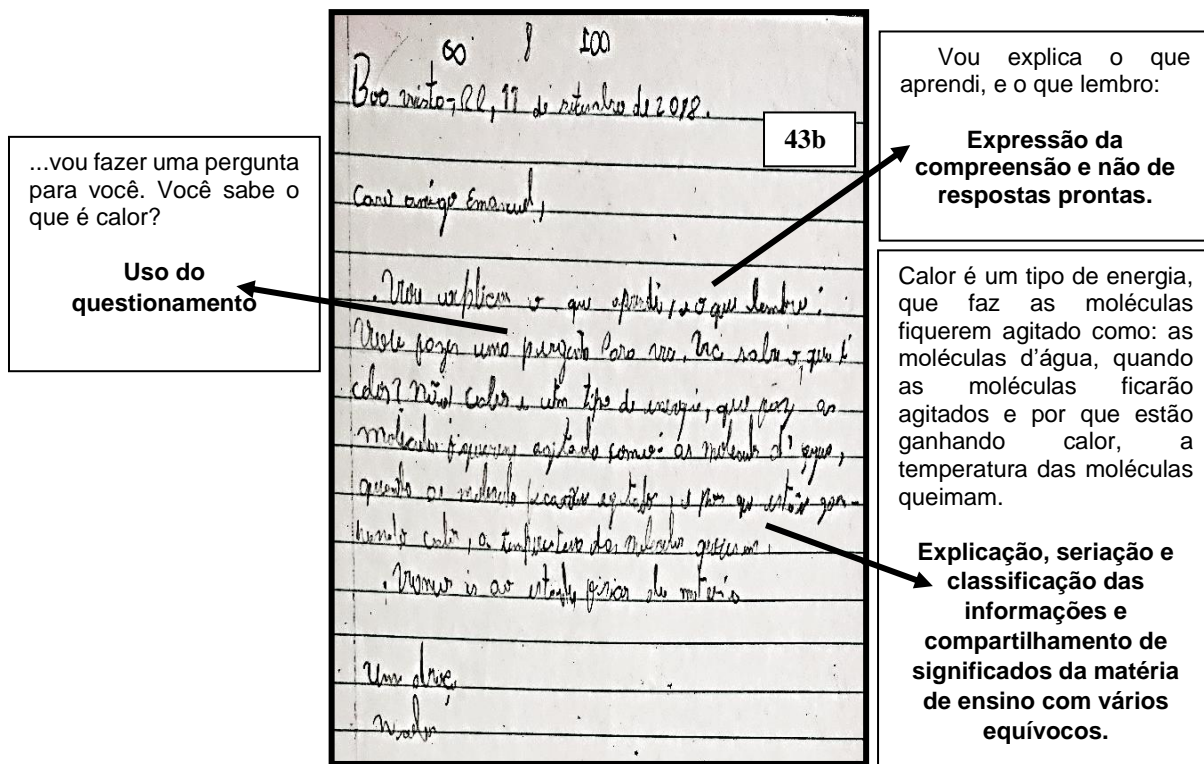 60 8 100
Boa vista, RR, 11 de setembro de 2018.
43b
Caro amigo Emanuel,
. Vou explica o que aprendi, e o que lembro:
Vou fazer uma pergunta Para voce. Voce sabe o que é
calor? Não! Calor e um tipo de energia, que faz as
moleculas fiquerem agitado como: as moleculas d'agua,
quando as moleculas ficarão agitados, e por que estão gan-
hando calor, a temperatura das moleculas queimam.
. Vamos is ao estado fisicos da materia
Um
...vou fazer uma pergunta
para você. Você sabe o
que é calor?
Uso do
questionamento
Vou explica o que
aprendi, e o que lembro:
Expressão da
compreensão e não de
respostas prontas.
Calor é um tipo de energia,
que faz as moléculas
fiquerem agitado como: as
moléculas d'água, quando
as moléculas ficarão
agitados e por que estão
ganhando calor, a
temperatura das moléculas
queimam.
Explicação, seriação e
classificação das
informações e
compartilhamento de
significados da matéria
de ensino com vários
equívocos.